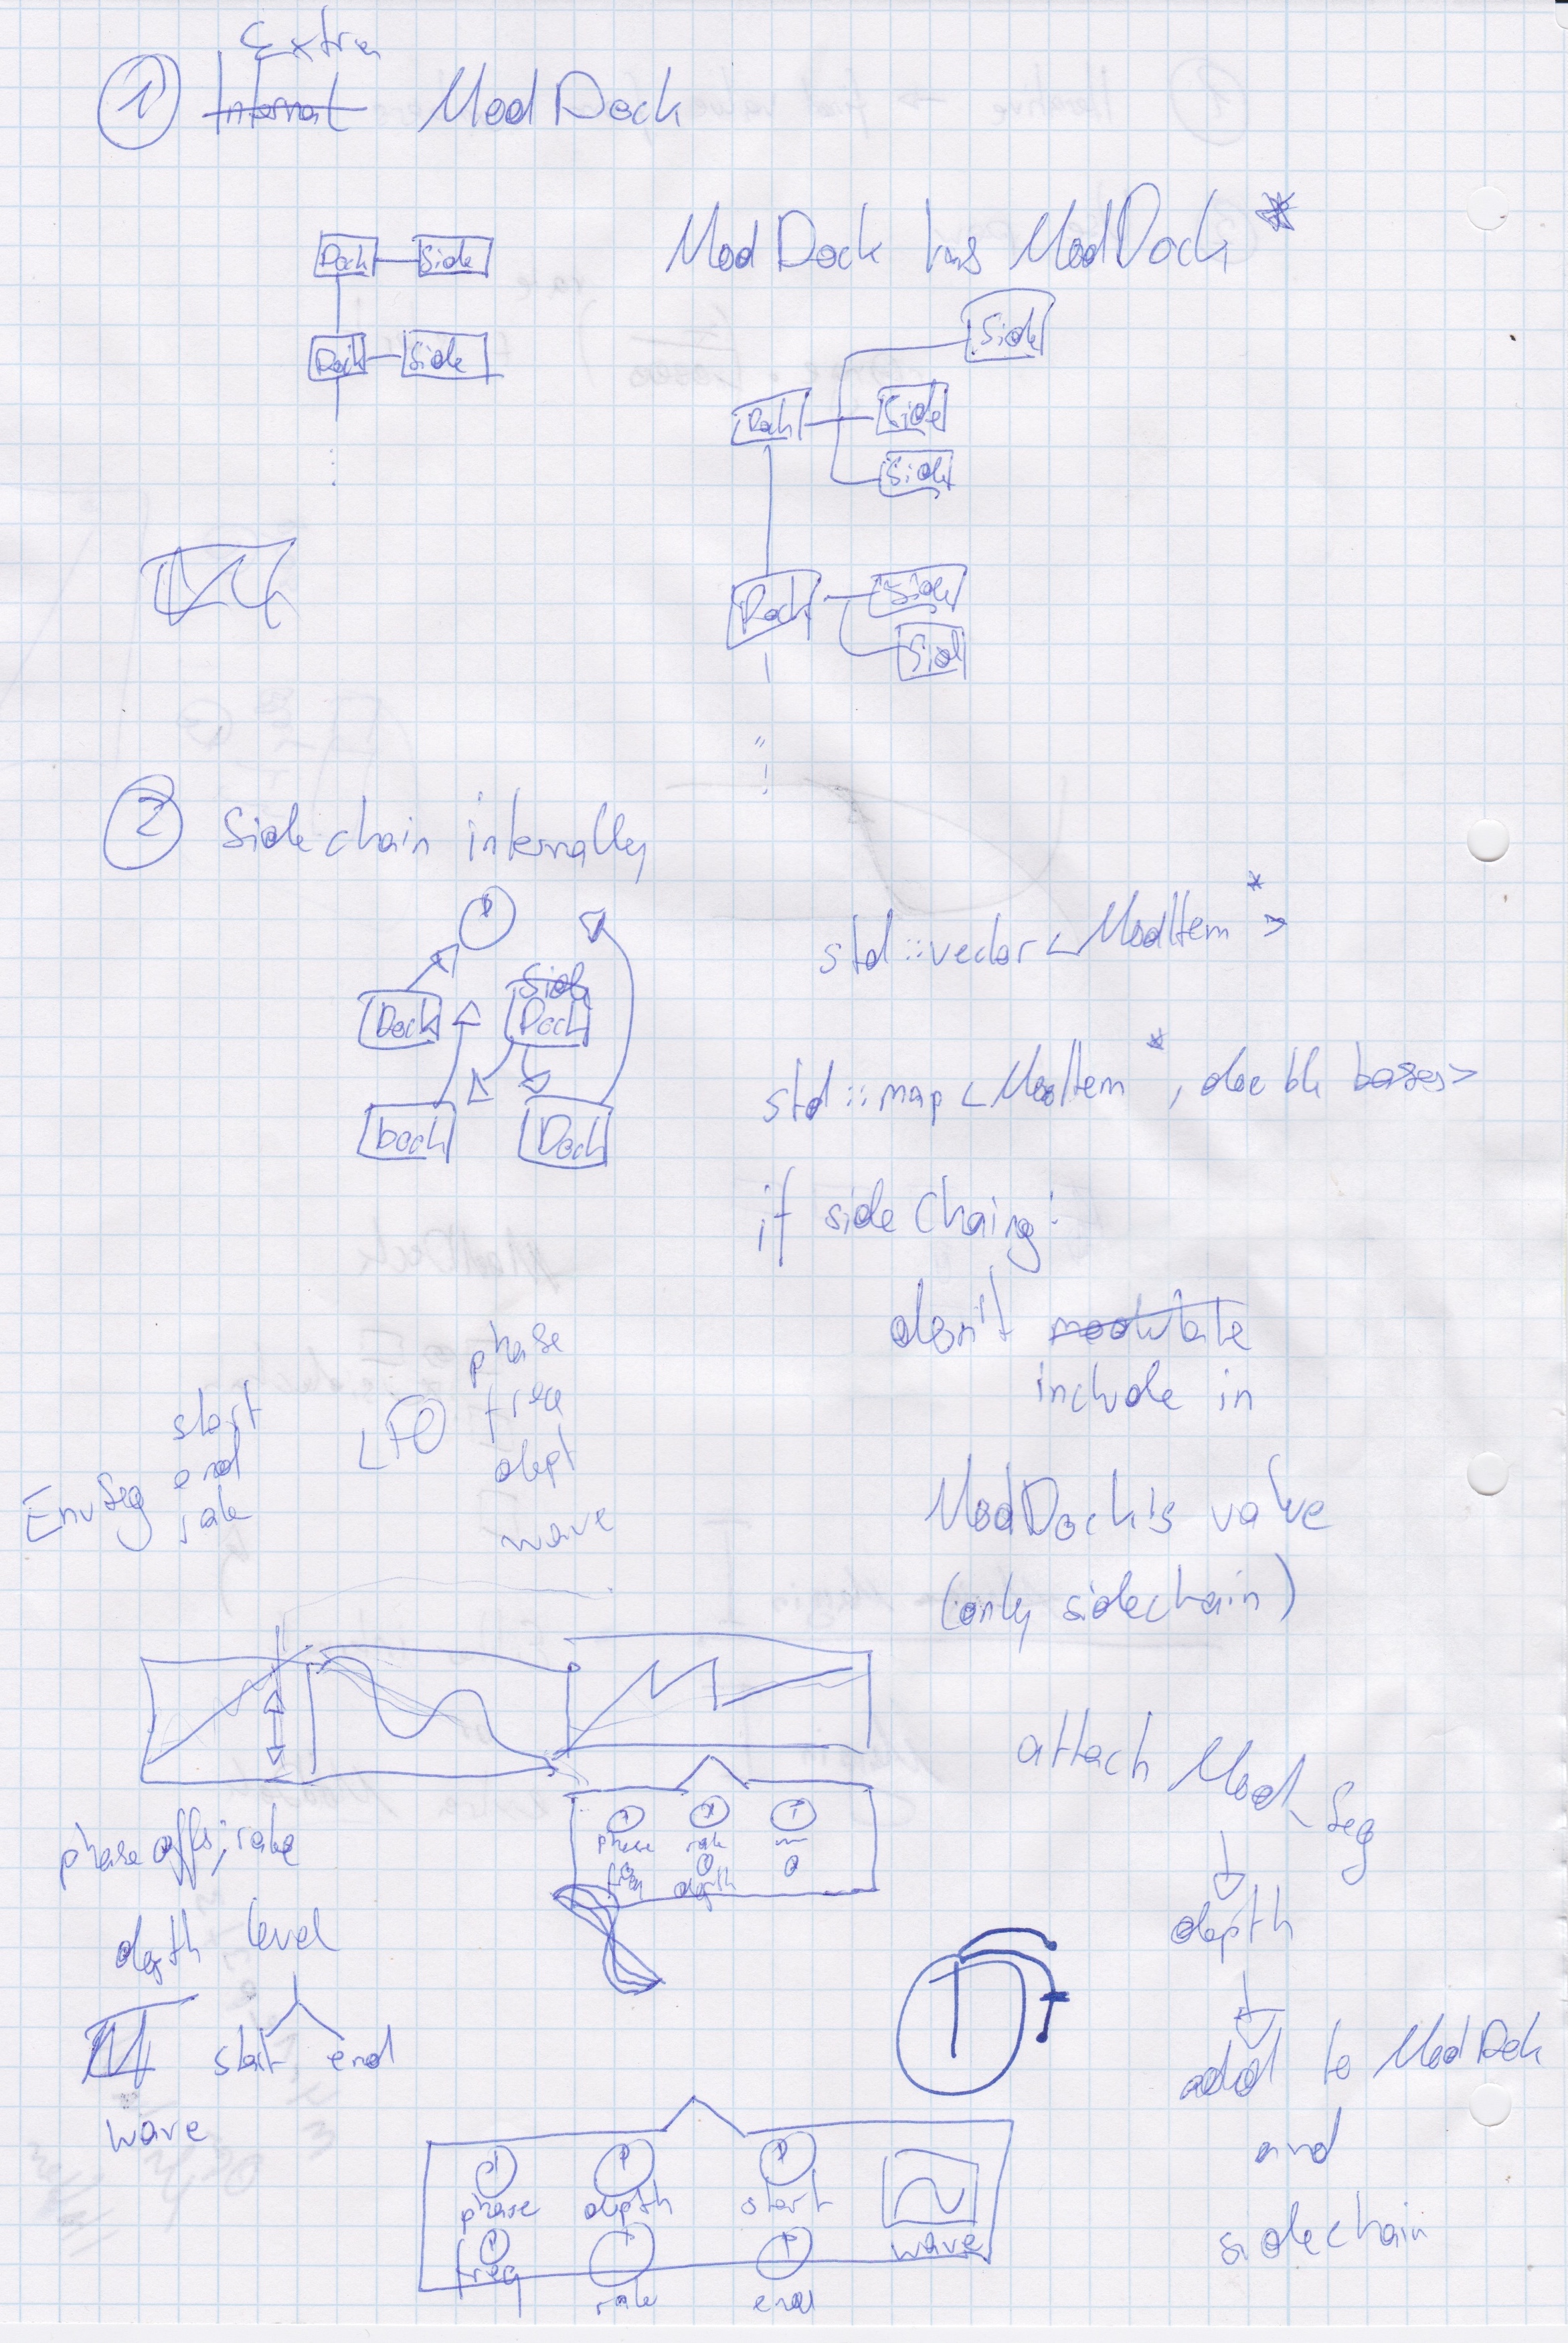 Extra
① Internal ModDock
ModDock has ModDock *
Dock Side
Dock Side
Side
Dock Side
Side
Dock Side
Side
② Sidechain internally
Dock Side Dock
Dock Dock
std::vector<ModItem*>
std::map<ModItem*, double bases>
if sideChaing:
don't modulate
include in
ModDock's value
(only sidechain)
EnvSeg
start
end
rate
LFO
phase
freq
dept
wave
phase offs; rate
depth level
start end
wave
phase rate
freq depth
attach Mod_Seg
depth
add to ModDock
and
sidechain
phase depth start wave
freq rate end